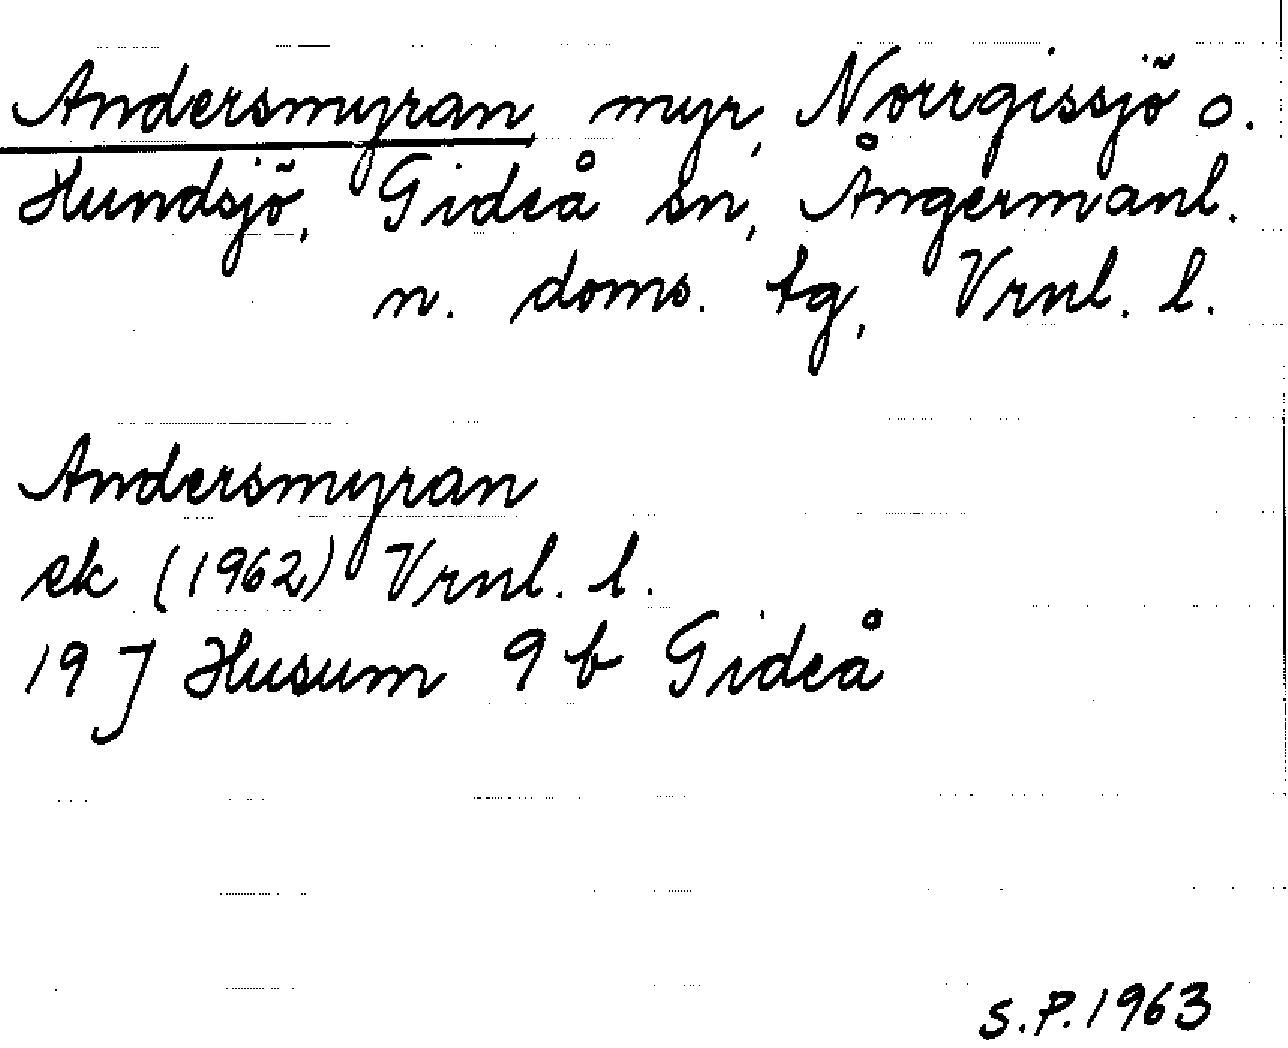 Andersmyran, myr, Norrgissjö o.
Hundsjö, Gideå sn, Ångermanl.
n. doms. tg, Vrnl. l.
Andersmyran
ek (1962) Vrnl. l.
19 J Husum 9 b Gideå
S.P. 1963